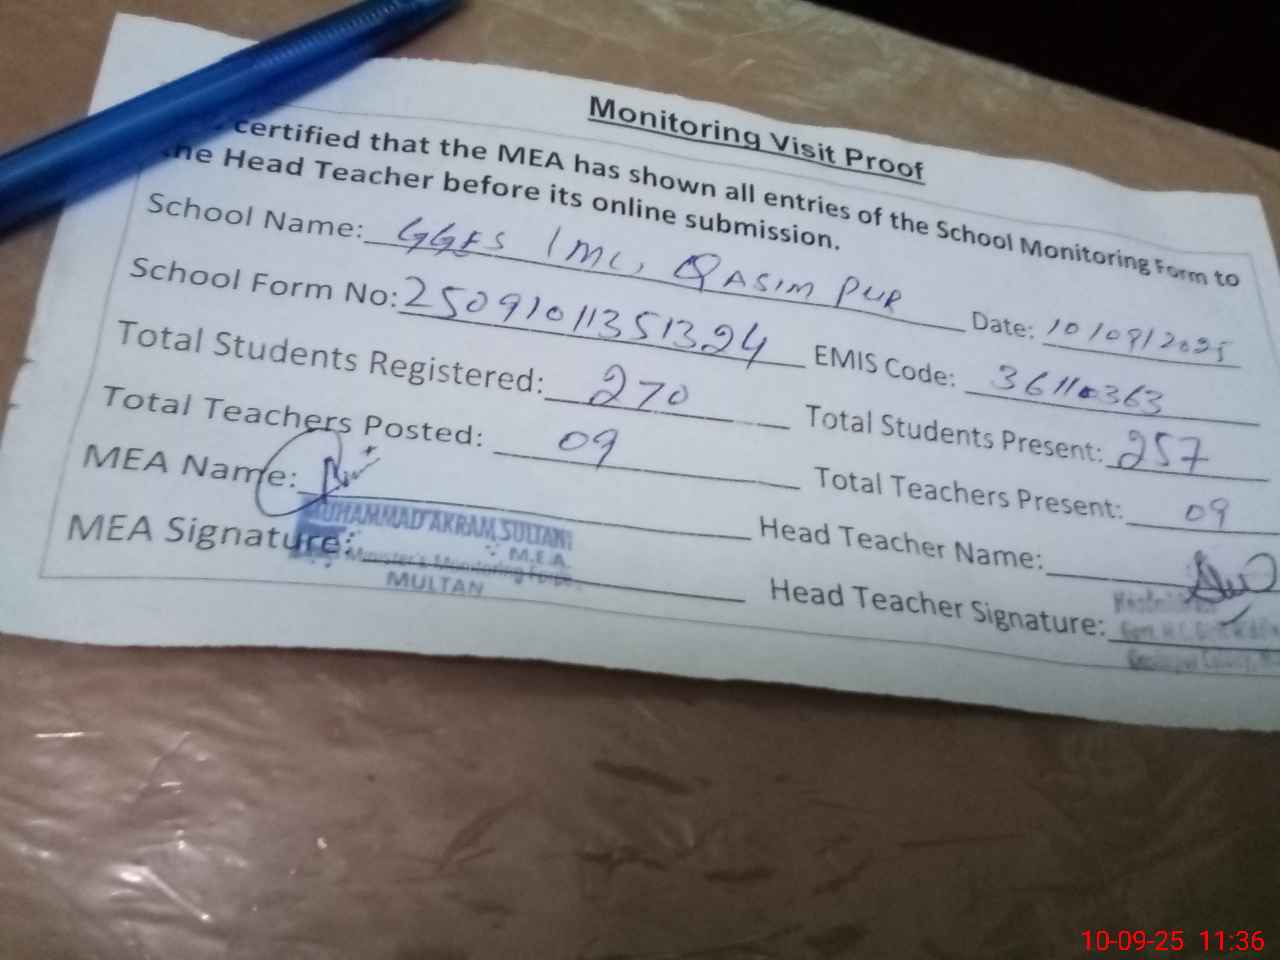 Monitoring Visit Proof
certified that the MEA has shown all entries of the School Monitoring Form to
the Head Teacher before its online submission.
School Name: GGES 1MC, QASIM PUR Date: 10/09/2025
School Form No: 25091011351324 EMIS Code: 36110363
Total Students Registered: 270 Total Students Present: 257
Total Teachers Posted: 09 Total Teachers Present: 09
MEA Name: Head Teacher Name:
MUHAMMAD AKRAM SULTANI
MEA Signature: Head Teacher Signature:
M.E.A.
Minister's Monitoring Force
MULTAN
10-09-25 11:36